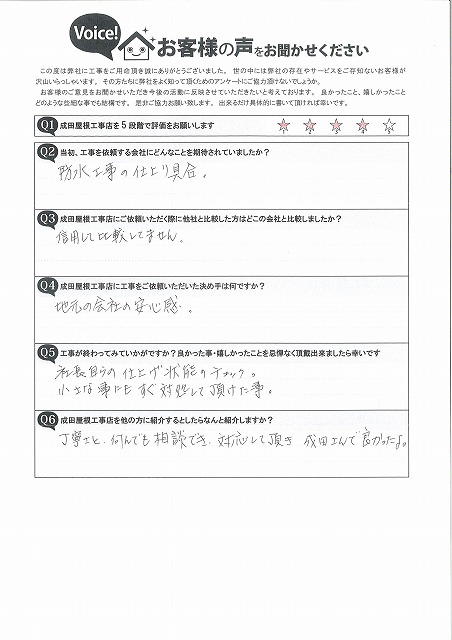 Voice!
お客様の声をお聞かせください
この度は弊社に工事をご用命頂き誠にありがとうございました。 世の中には弊社の存在やサービスをご存知ないお客様が
沢山いらっしゃいます。 その方たちに弊社をよく知って頂くためのアンケートにご協力頂けないでしょうか。
お客様のご意見をお聞かせいただき今後の活動に反映させていただきたいと考えております。 良かったこと、嬉しかったこと
どのような些細な事でも結構です。 是非ご協力お願い致します。 出来るだけ具体的に書いて頂ければ幸いです。
Q1 成田屋根工事店を5段階で評価をお願いします
1 2 3 4 5
Q2 当初、工事を依頼する会社にどんなことを期待されていましたか?
防水工事の仕上り具合。
Q3 成田屋根工事店にご依頼いただく際に他社と比較した方はどこの会社と比較しましたか?
信用して比較してません。
Q4 成田屋根工事店に工事をご依頼いただいた決め手は何ですか?
地元の会社の安心感。
Q5 工事が終わってみていかがですか?良かった事・嬉しかったことを忌憚なく頂戴出来ましたら幸いです
社長自らの仕上げ状態のチェック。
小さな事にもすぐ対処して頂けた事。
Q6 成田屋根工事店を他の方に紹介するとしたらなんと紹介しますか?
丁寧さと、何んでも相談でき、対応して頂き 成田さんで良かったよ。